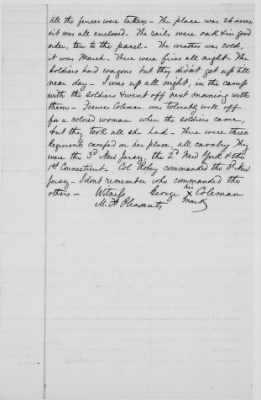 All the fences were taken - The place was 26 acres
& it was all enclosed. The rails were oak & in good
order, ten to the panel - The weather was cold,
it was March. There were fires all night - The
soldiers had wagons but they didn't get up till
near day - I was up all night, in the camp
with the soldiers & went off next morning with
them - Frances Coleman was tolerably well off
for a colored woman when the soldiers came,
but they took all she had - There were three
Regiments camped on her place, all cavalry They
were the 3d New Jersey, the 2d New York & the
1st Connecticut - Col Roby commanded the 3d New
Jersey - I don't remember who commanded the
others -
Witness George his x mark Coleman
M. F. Pleasants